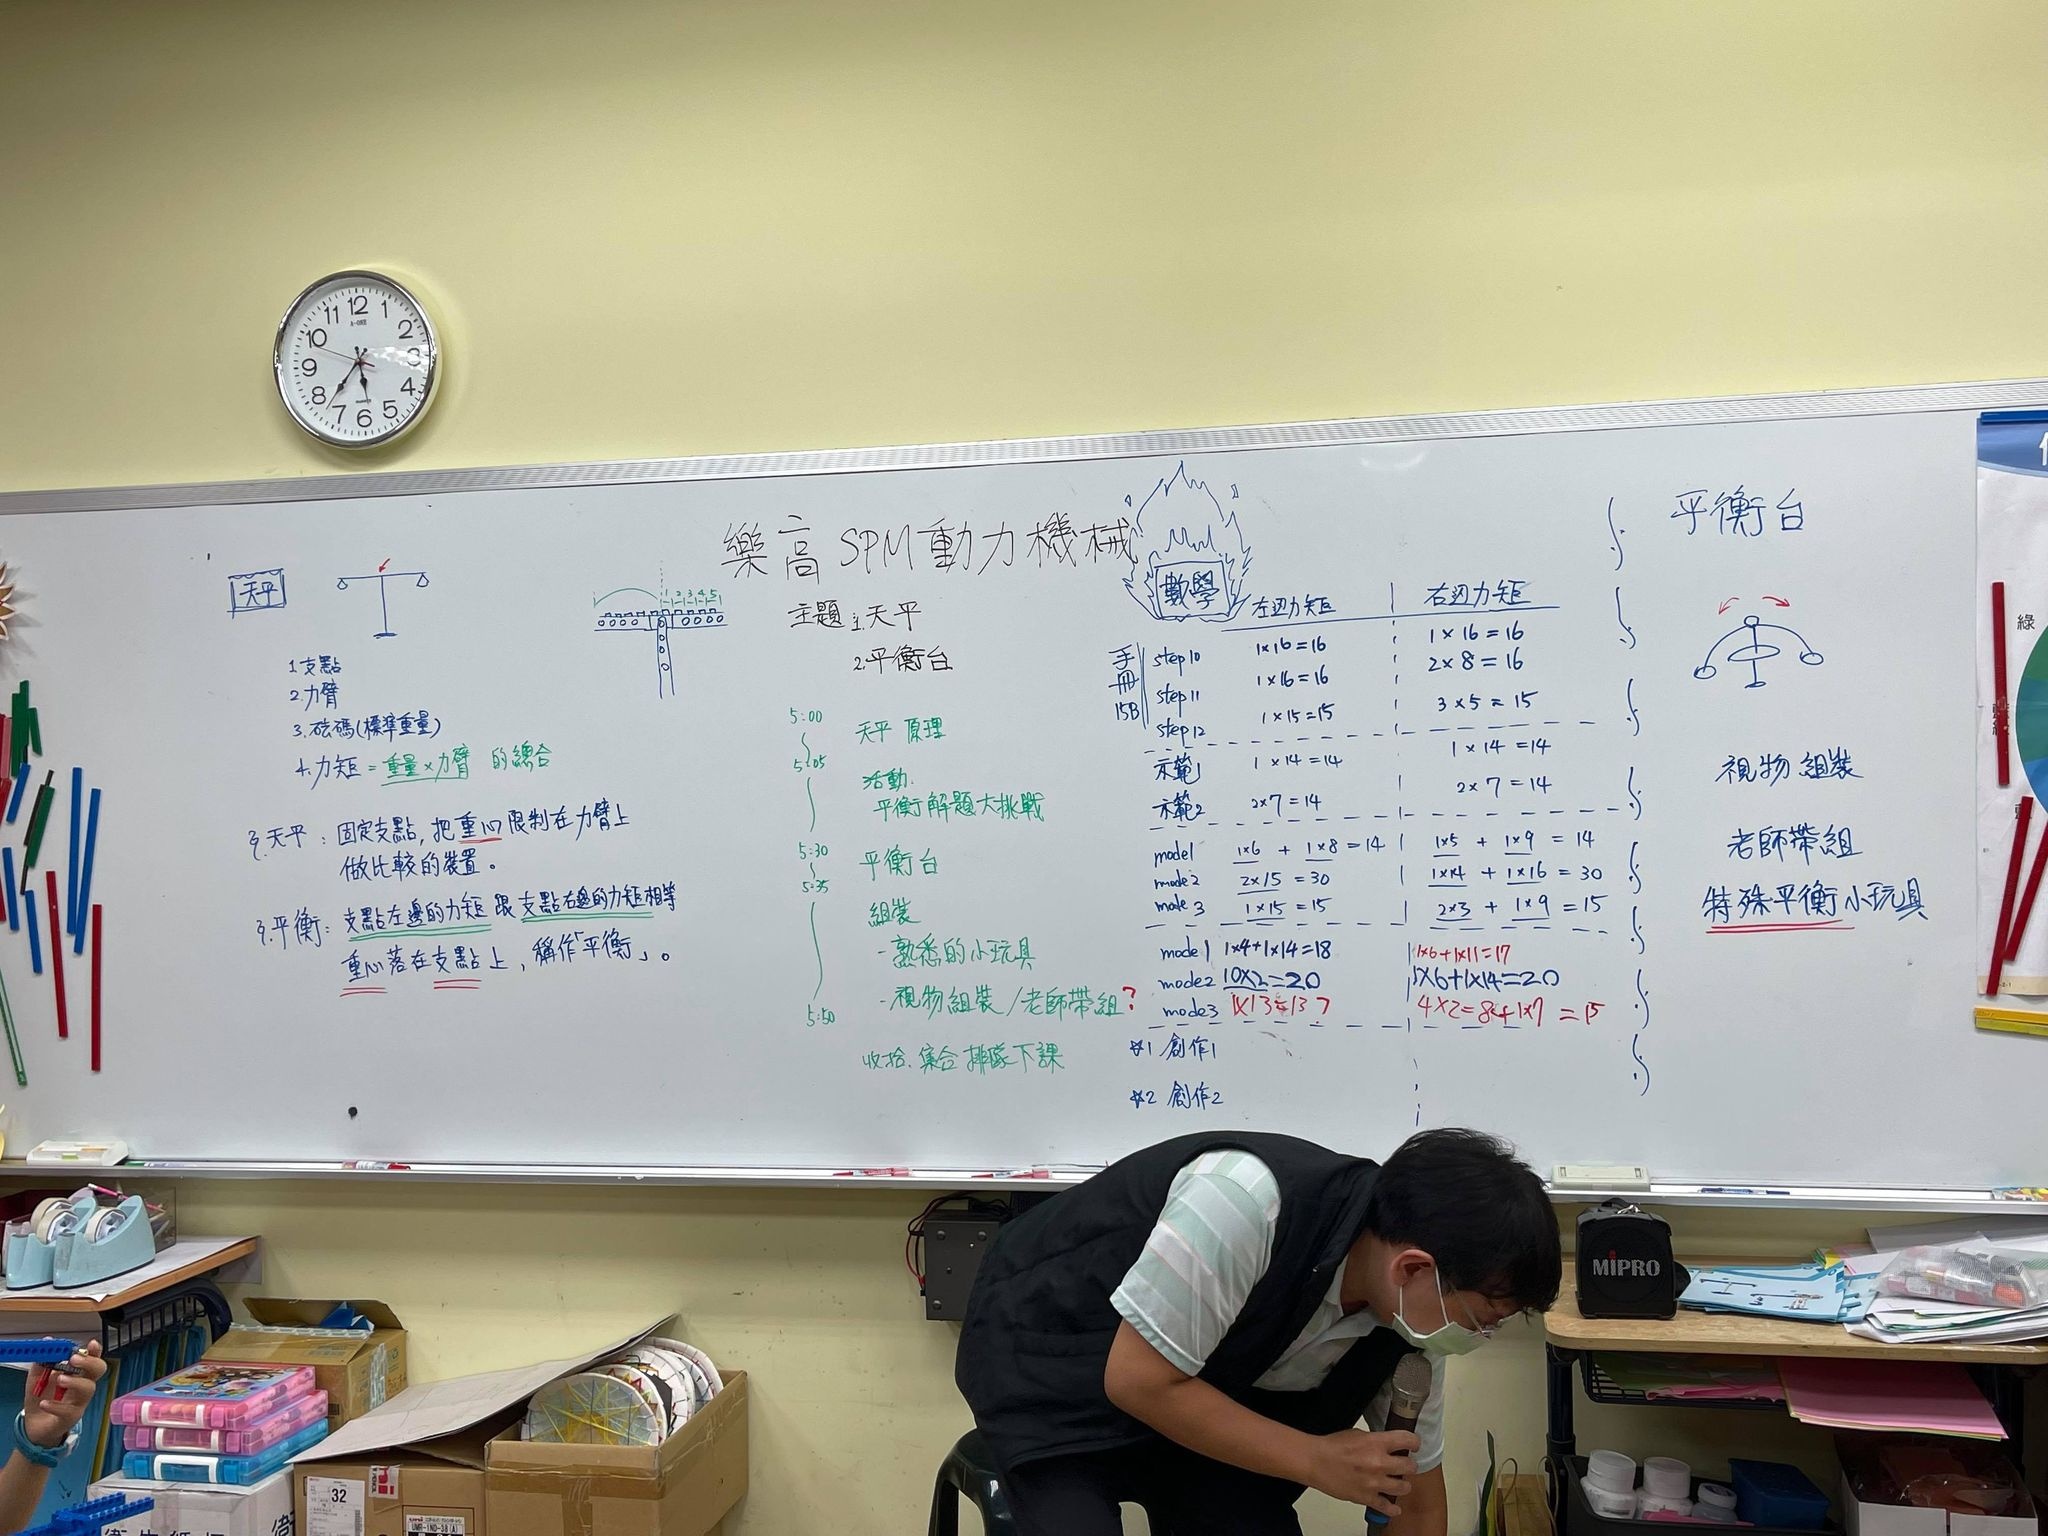 樂高 SPM 動力機械
數學
主題 1.天平
2.平衡台
天平
1.支點
2.力臂
3.砝碼(標準重量)
4.力矩=重量×力臂 的總合
天平：固定支點,把重心限制在力臂上
做比較的裝置。
平衡：支點左邊的力矩跟支點右邊的力矩相等
重心落在支點上,稱作「平衡」。
1 2 3 4 5
5:00
天平 原理
5:05
活動:
平衡解題大挑戰
5:30
平衡台
5:35
組裝
-熟悉的小玩具
-視物組裝/老師帶組?
5:50
收拾.集合 排隊下課
左边力矩 右边力矩
手冊
15B
step10 1×16=16 1×16=16
step11 1×16=16 2×8=16
step12 1×15=15 3×5=15
示範1 1×14=14 1×14=14
示範2 2×7=14 2×7=14
mode1 1×6 + 1×8 = 14 1×5 + 1×9 = 14
mode2 2×15 = 30 1×14 + 1×16 = 30
mode3 1×15 = 15 2×3 + 1×9 = 15
mode1 1×4+1×14=18 1×6+1×11=17
mode2 10×2=20 1×6+1×14=20
mode3 1×13=13 ? 4×2=8+1×7=15
☆1 創作1
☆2 創作2
平衡台
視物組裝
老師帶組
特殊平衡小玩具
12 1 2 3 4 5 6 7 8 9 10 11
A-ONE
綠
MIPRO
32
UMR-1ND-38(A)